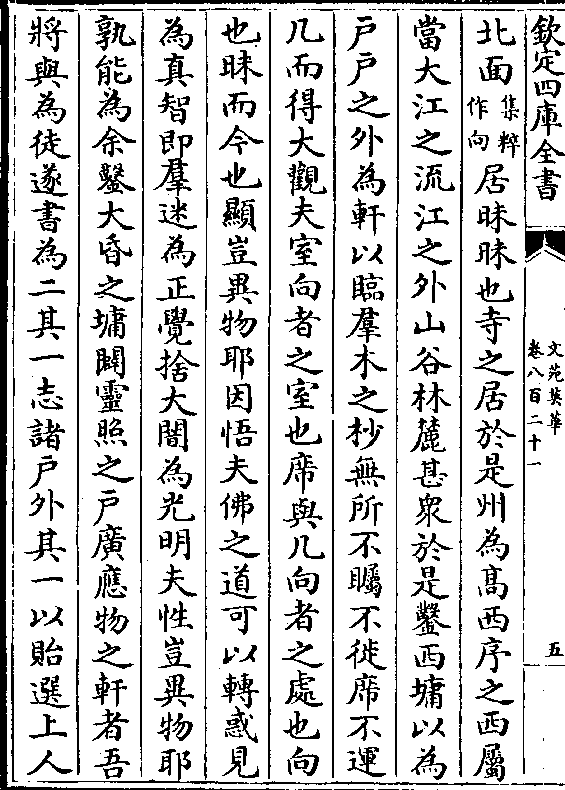 欽定四庫全書
文苑英華
卷八百二十一
五
北面集粹作向居昧昧也寺之居於是州為髙西序之西屬
當大江之流江之外山谷林麓甚衆於是鑿西墉以為
户户之外為軒以臨羣木之杪無所不矚不徙席不運
几而得大觀夫室向者之室也席與几向者之處也向
也昧而今也顯豈異物耶因悟夫佛之道可以轉惑見
為真智即羣迷為正覺捨大闇為光明夫性豈異物耶
孰能為余鑿大昏之墉闢靈照之户廣應物之軒者吾
將與為徒遂書為二其一志諸户外其一以貽選上人